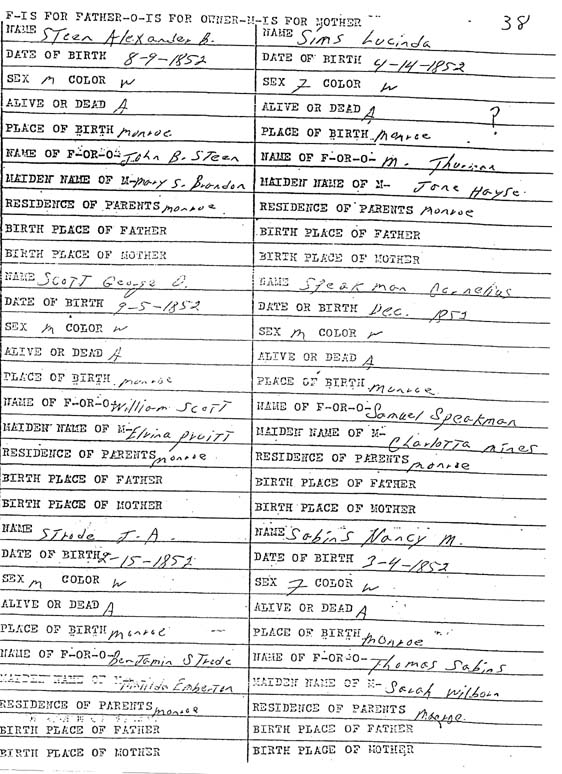 F-IS FOR FATHER-O-IS FOR OWNER-M-IS FOR MOTHER
38
NAME STeen Alexander B.
DATE OF BIRTH 8-9-1852
SEX M COLOR W
ALIVE OR DEAD A
PLACE OF BIRTH monroe
NAME OF F-OR-O- John B. STeen
MAIDEN NAME OF M- mary S. Brandon
RESIDENCE OF PARENTS monroe
BIRTH PLACE OF FATHER
BIRTH PLACE OF MOTHER
NAME Sims Lucinda
DATE OF BIRTH 4-14-1852
SEX F COLOR W
ALIVE OR DEAD A ?
PLACE OF BIRTH monroe
NAME OF F-OR-O- M.
MAIDEN NAME OF M- Jane Hayse
RESIDENCE OF PARENTS monroe
BIRTH PLACE OF FATHER
BIRTH PLACE OF MOTHER
NAME ScoTT George
DATE OF BIRTH 9-5-1852
SEX M COLOR W
ALIVE OR DEAD A
PLACE OF BIRTH monroe
NAME OF F-OR-O- William ScoTT
MAIDEN NAME OF M- Elvina PruiTT
RESIDENCE OF PARENTS monroe
BIRTH PLACE OF FATHER
BIRTH PLACE OF MOTHER
NAME Speakman Cornelius
DATE OR BIRTH Dec. 1852
SEX M COLOR W
ALIVE OR DEAD A
PLACE OF BIRTH monroe
NAME OF F-OR-O- Samuel Speakman
MAIDEN NAME OF M- CharloTTa mines
RESIDENCE OF PARENTS monroe
BIRTH PLACE OF FATHER
BIRTH PLACE OF MOTHER
NAME STrode J. A.
DATE OF BIRTH 2-15-1852
SEX M COLOR W
ALIVE OR DEAD A
PLACE OF BIRTH monroe
NAME OF F-OR-O- Benjamin STrode
MAIDEN NAME OF M- Matilda EmberTon
RESIDENCE OF PARENTS monroe
BIRTH PLACE OF FATHER
BIRTH PLACE OF MOTHER
NAME Sabins Nancy M.
DATE OF BIRTH 3-4-1852
SEX F COLOR W
ALIVE OR DEAD A
PLACE OF BIRTH monroe
NAME OF F-OR-O- Thomas Sabins
MAIDEN NAME OF M- Sarah Wilborn
RESIDENCE OF PARENTS Monroe
BIRTH PLACE OF FATHER
BIRTH PLACE OF MOTHER